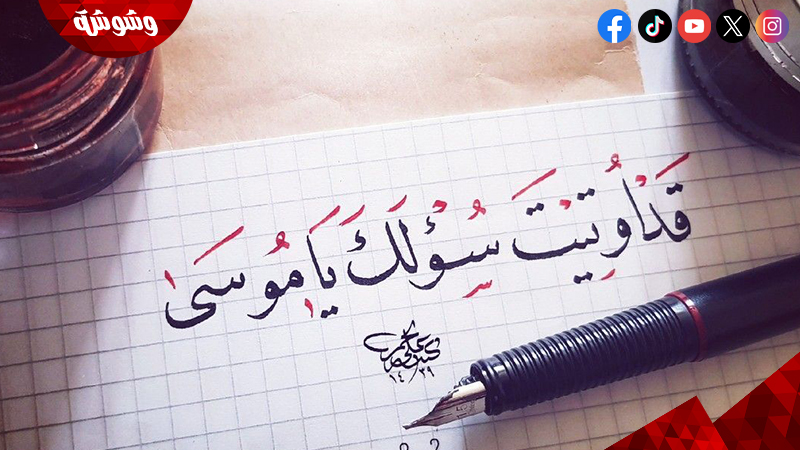 وشوشة
قَدْ أُوتِيتَ سُؤْلَكَ يَا مُوسَى
١٤٣٩